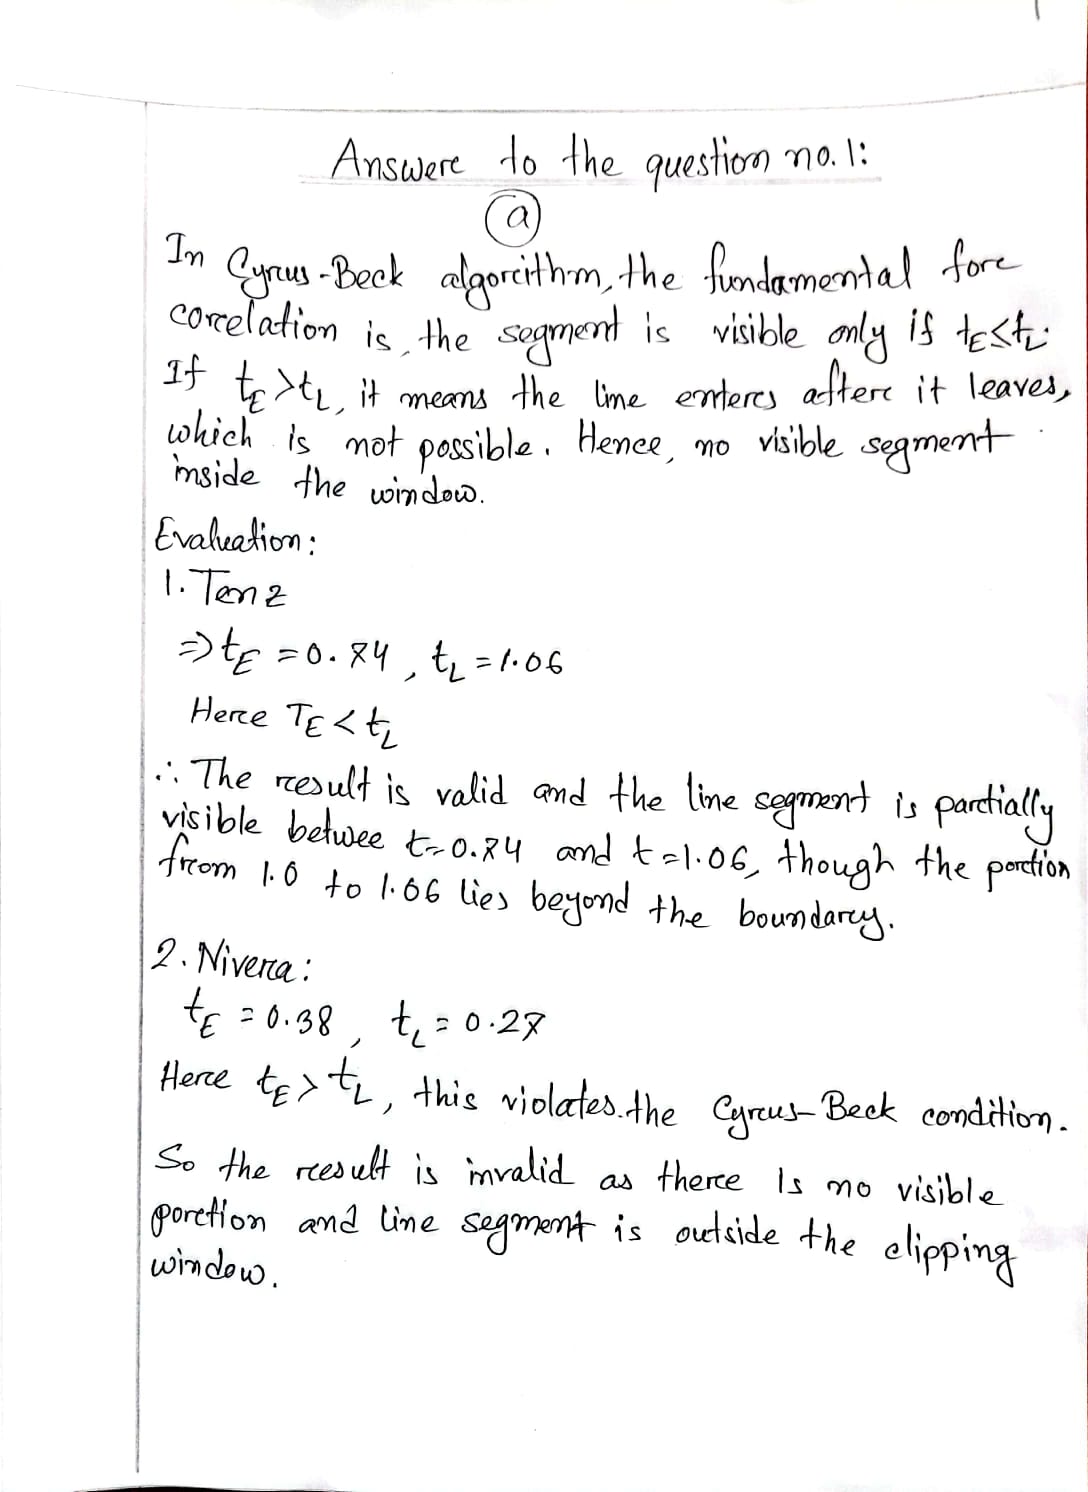 Answere to the question no. 1:
a
In Cyrus-Beck algorcithm, the fundamental fore
correlation is, the segment is visible only if tE≤tL.
If tE>tL, it means the line enters aftere it leaves,
which is not possible. Hence, no visible segment
inside the window.
Evaluation:
1. Tenz
⇒ tE = 0.74, tL = 1.06
Herce TE < tL
∴ The rcesult is valid and the line segment is parctially
visible betwee t=0.74 and t=1.06, though the porction
from 1.0 to 1.06 lies beyond the boundarcy.
2. Nivera:
tE = 0.38, tL = 0.27
Herce tE > tL, this violates the Cyrcus-Beck condition.
So the rcesult is invalid as therce Is no visible
porction and line segment is outside the clipping
window.